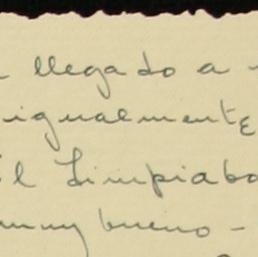 llegado a
igualmente
El Limpiabo
muy bueno -